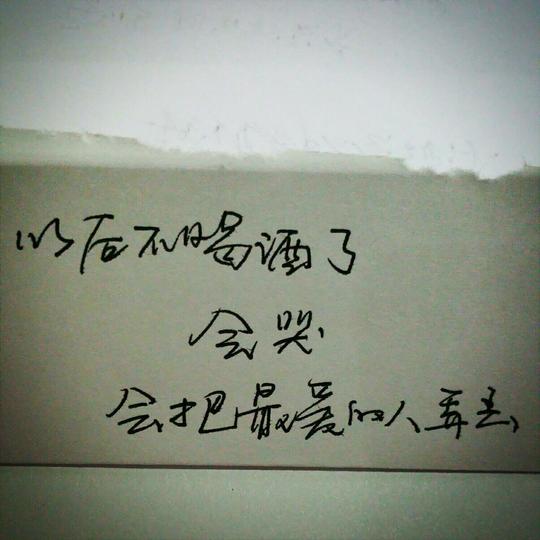 以后不喝酒了
会哭
会把最爱的人弄丢